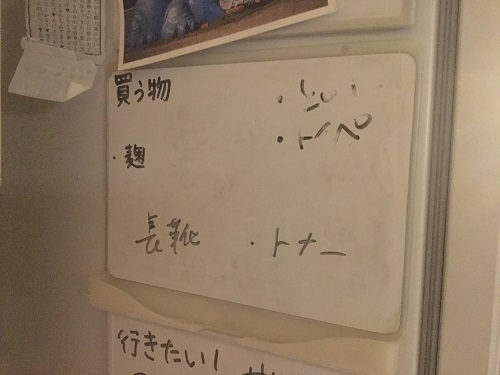 買う物
・トイペ
・麹
長靴
・トナー
行きたい!